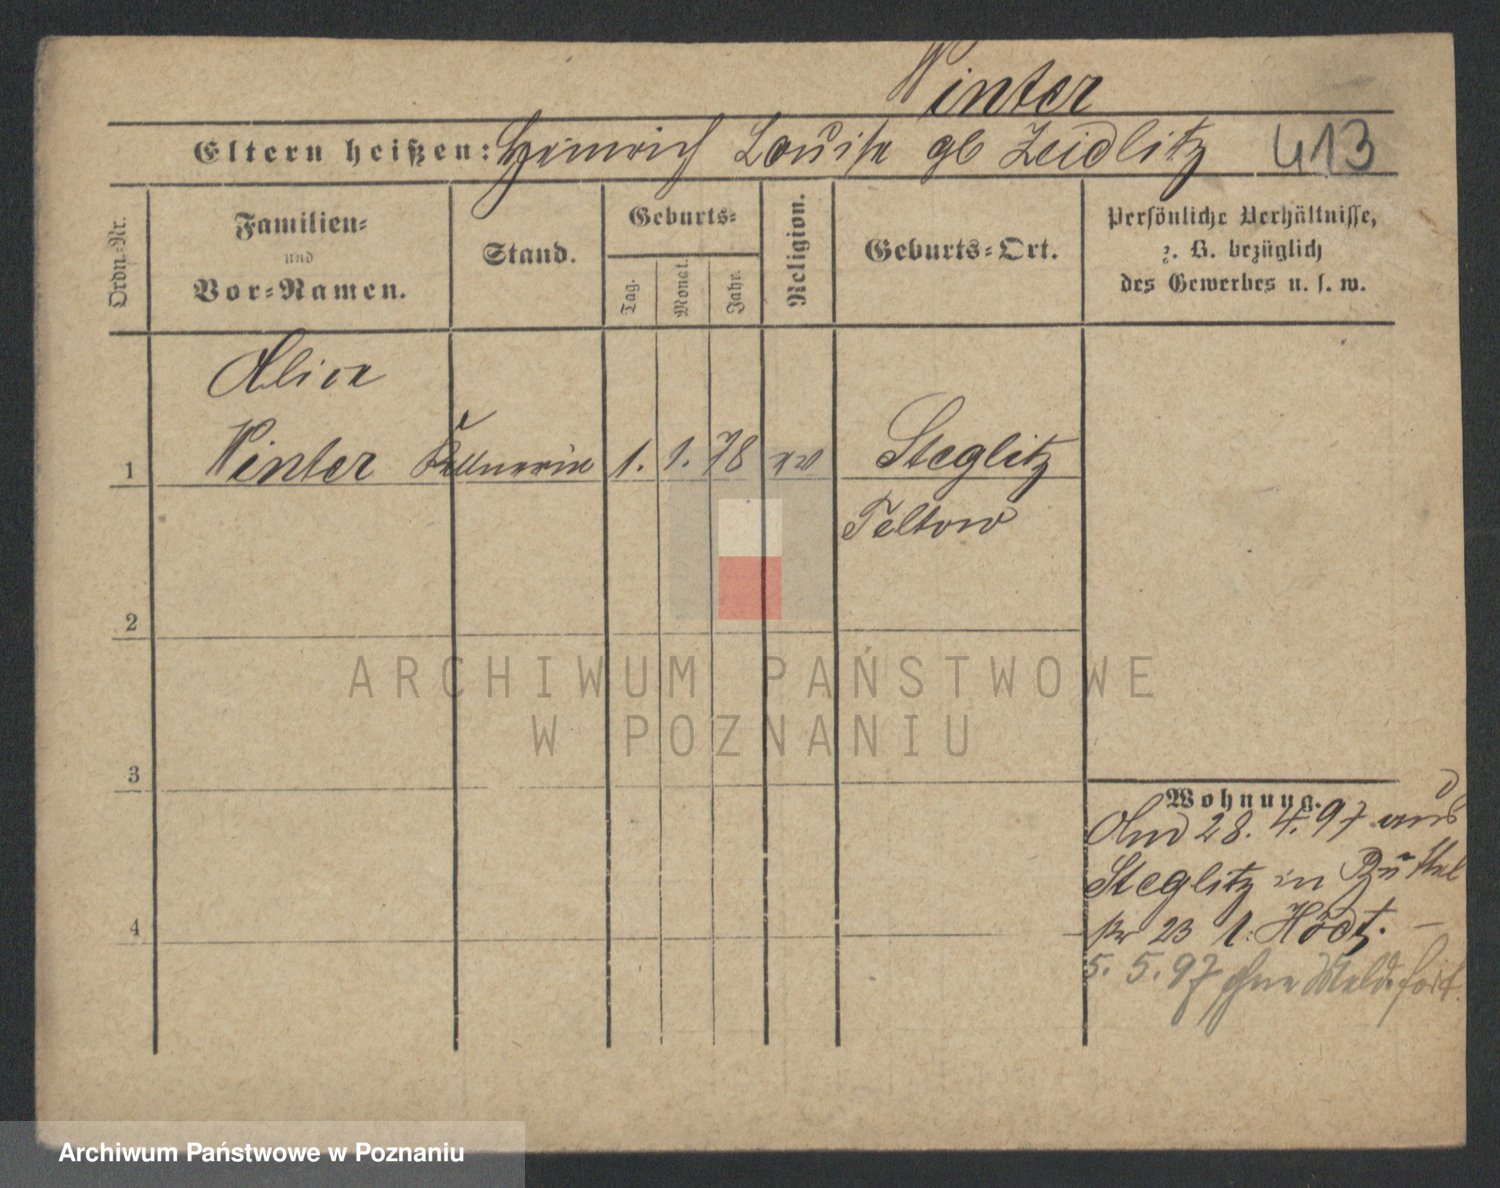 Winter
Eltern heißen: Heinrich Louise gb Zeidlitz 413
Ordn.-Nr.
Familien-
und
Vor-Namen.
Stand.
Geburts-
Tag.
Monat.
Jahr.
Religion.
Geburts-Ort.
Persönliche Verhältnisse,
z. B. bezüglich
des Gewerbes u. s. w.
Alice
1 Winter Kellnerin 1. 1. 78 ev Steglitz
Teltow
2
ARCHIWUM PAŃSTWOWE
W POZNANIU
3
Wohnung.
28. 4. 97 aus
Steglitz in Büttel
str 23 b.
4
5. 5. 97 ohne Meld. fort.
Archiwum Państwowe w Poznaniu